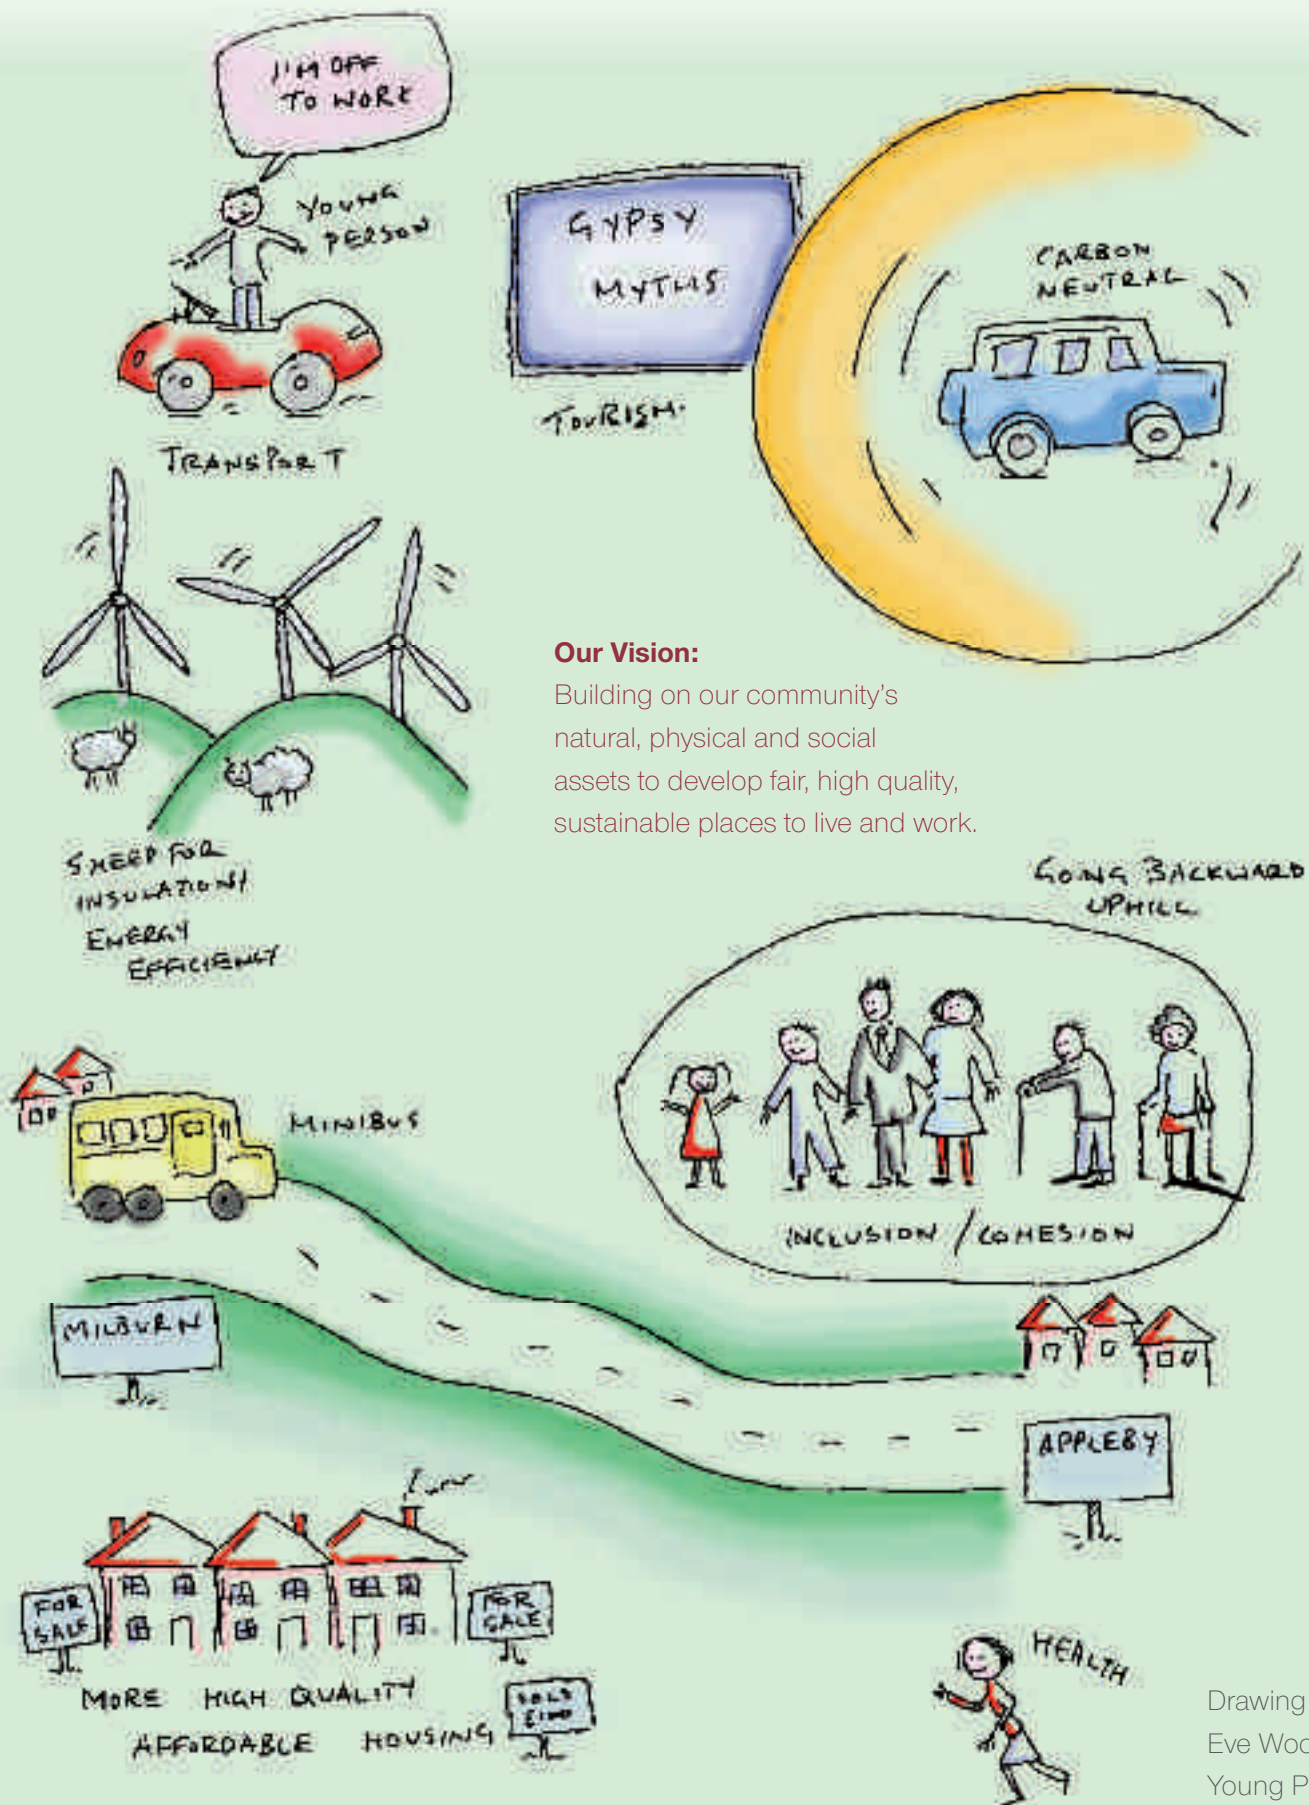 I'M OFF
TO WORK
YOUNG
PERSON
TRANSPORT
GYPSY
MYTHS
TOURISM.
CARBON
NEUTRAL
Our Vision:
Building on our community's
natural, physical and social
assets to develop fair, high quality,
sustainable places to live and work.
SHEEP FOR
INSULATION/
ENERGY
EFFICIENCY
GOING BACKWARD
UPHILL
INCLUSION / COHESION
MINIBUS
MILBURN
APPLEBY
FOR
SALE
FOR
SALE
MORE HIGH QUALITY
AFFORDABLE HOUSING
SOLD
HEALTH
Drawing
Eve
Young